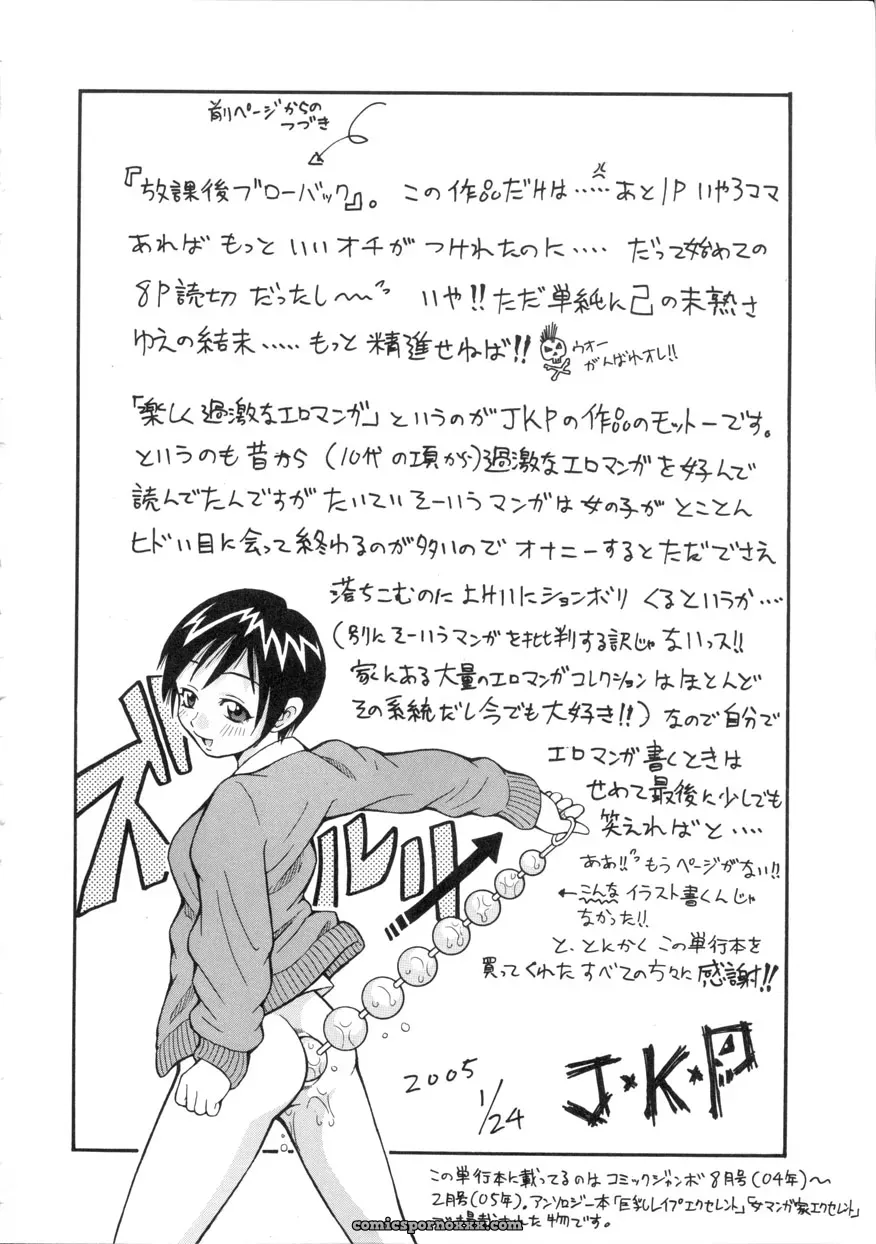 前ページからの
つづき
『放課後ブローバック』。この作品だけは……あと1P いやろママ
あれば もっと いい オチが つけれたのに…… だって始めての
8P読切 だったし〜〜 いや!!ただ単純に己の未熟さ
ゆえの結末……もっと精進せねば!!
ウオー
がんばれオレ!!
「楽しく過激なエロマンガ」というのがJKPの作品のモットーです。
というのも昔から(10代の項から)過激なエロマンガを好んで
読んでたんですが たいてい そーいう マンガは 女の子が とことん
ヒドい目に会って終わるのが多いので オナニーするとただでさえ
落ちこむのに よけいにションボリ くるというか…
(別にそーいうマンガを批判する訳じゃないっス!!
家にある大量のエロマンガコレクションはほとんど
その系統だし今でも大好き!!)なので自分で
エロマンガ書くときは
せめて最後に少しでも
笑えればと……
ああ!! もうページがない!!
←こんな イラスト書くんじゃ
なかった!!
と、とにかく この単行本を
買ってくれた すべての方々に 感謝!!
ズルルリ
2005 1/24
J・K・P
この単行本に載ってるのは コミックジャンボ 8月号(04年)〜
2月号(05年)。アンソロジー本「巨乳レイプエクセレント」「女マンガ家エクセレント」
で掲載された物です。
comicspornoxxx.com